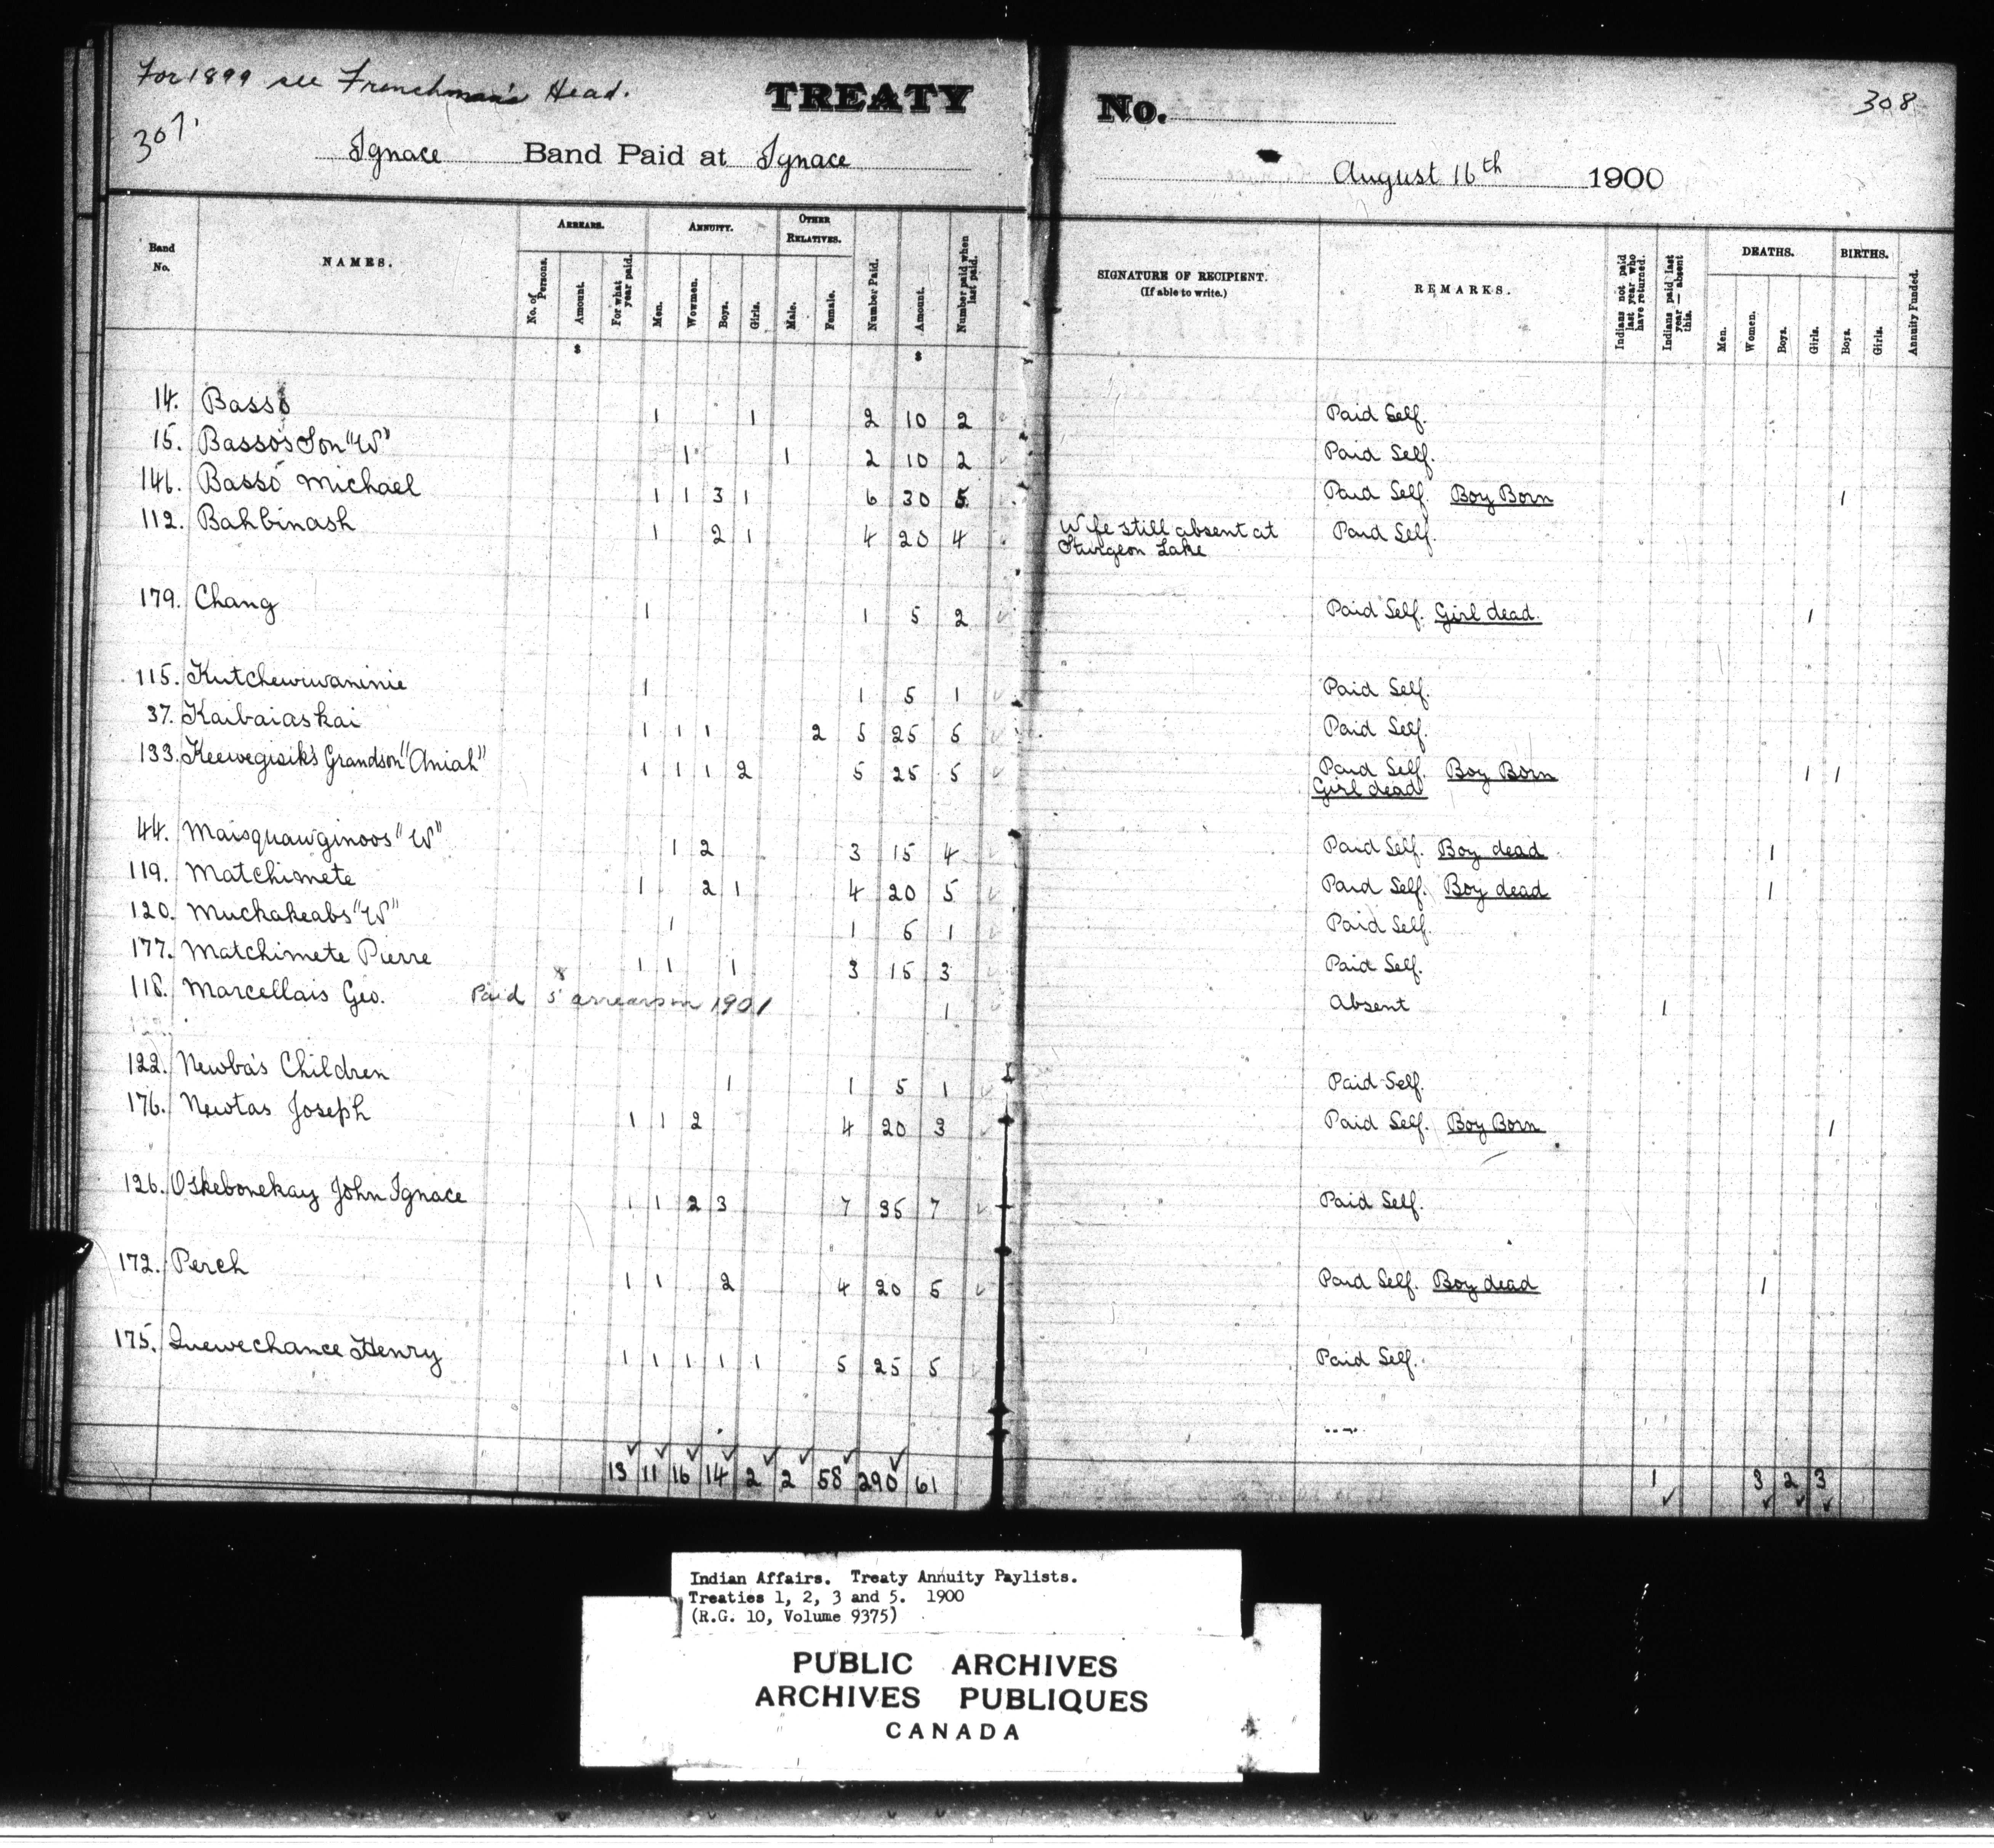 For 1899 see Frenchman's Head.
307.
TREATY No. 308
Ignace Band Paid at Ignace August 16th 1900
Band No. NAMES. ARREARS. No. of Persons. Amount. For what year paid. ANNUITY. Men. Wowmen. Boys. Girls. OTHER RELATIVES. Male. Female. Number Paid. Amount. Number paid when last paid. SIGNATURE OF RECIPIENT. (If able to write.) REMARKS. Indians not paid last year who have returned. Indians paid last year — absent this. DEATHS. Men. Women. Boys. Girls. BIRTHS. Boys. Girls. Annuity Funded.
$ $
14. Basso 1 1 2 10 2 Paid Self.
15. Basso's Son "W" 1 1 2 10 2 Paid Self.
146. Basso Michael 1 1 3 1 6 30 5 Paid Self. Boy Born 1
112. Bahbinash 1 2 1 4 20 4 Wife still absent at Sturgeon Lake Paid Self.
179. Chang 1 1 5 2 Paid Self. Girl dead. 1
115. Kutchewiwaninie 1 1 5 1 Paid Self.
37. Kaibaiaskai 1 1 1 2 5 25 5 Paid Self.
133. Keewegisik's Grandson "Aniah" 1 1 1 2 5 25 5 Paid Self. Boy Born 1 1
Girl dead
44. Maisquawginoos "W" 1 2 3 15 4 Paid Self. Boy dead 1
119. Matchimete 1 2 1 4 20 5 Paid Self. Boy dead 1
120. Muckakeabs "W" 1 1 5 1 Paid Self.
177. Matchimete Pierre 1 1 1 3 15 3 Paid Self.
118. Marcellais Geo. Paid $5 arrears in 1901 1 Absent 1
122. Newba's Children 1 1 5 1 Paid Self.
176. Newtas Joseph 1 1 2 4 20 3 Paid Self. Boy Born 1
126. Oskebonekay John Ignace 1 1 2 3 7 35 7 Paid Self.
172. Perch 1 1 2 4 20 5 Paid Self. Boy dead 1
175. Quewechance Henry 1 1 1 1 1 5 25 5 Paid Self.
13 11 16 14 2 2 58 290 61 1 3 2 3
Indian Affairs. Treaty Annuity Paylists.
Treaties 1, 2, 3 and 5. 1900
(R.G. 10, Volume 9375)
PUBLIC ARCHIVES
ARCHIVES PUBLIQUES
CANADA